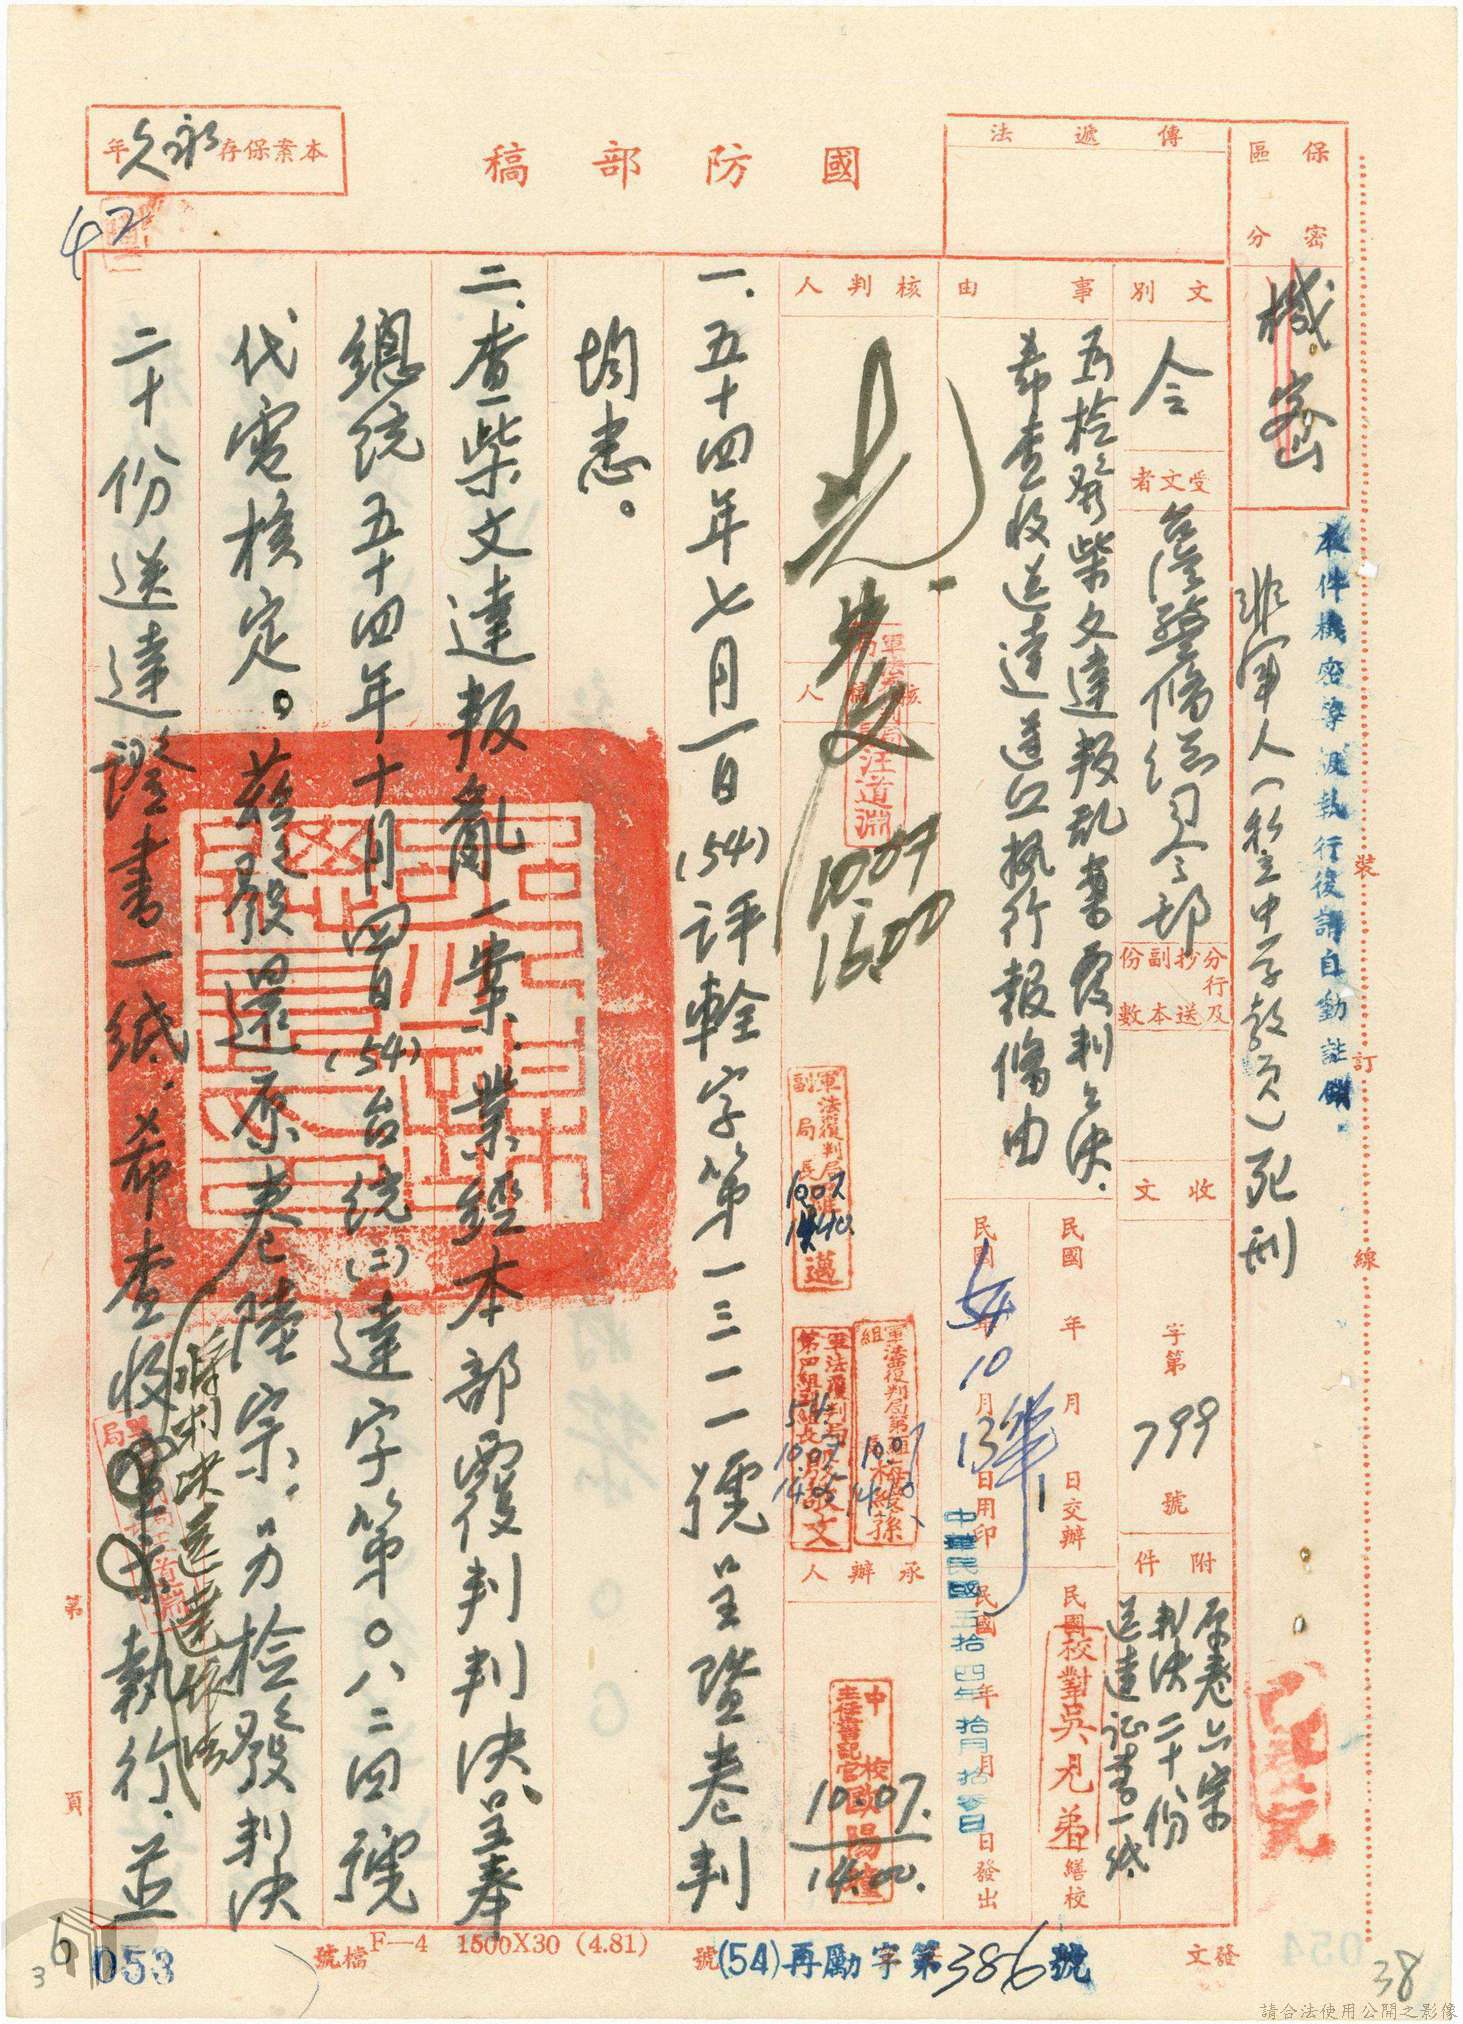 國防部稿
本案保存永久年
42
傳遞法
保密區分
機密
本件機密等級執行後請自動註銷
非軍人(私立中學教員)死刑
文別
令
受文者
台灣警備總司令部
分行及抄送副本份數
收文
字第799號
附件
原卷六宗
判決二十份
送達証書一紙
事由
為檢發柴文達叛亂書覆判之決,
希查收送達並執行報備由
民國 年 月 日交辦
民國54年10月13日用印
民國 年 月 日繕校
校對吳兄弟
民國 年 月 日發出
中華民國五拾四年拾月拾叁日
核判人
發
10.07
1600
核稿人
汪道淵
軍法覆判局副局長
10.07
1440
軍法覆判局第
組
梅綬蓀
10.07
軍法覆判局第四組組長
殷敬文
54.
10.07
承辦人
中校主任書記官歐陽
10.07.
14.00.
一.五十四年七月一日(54)評幹字第一三一一號呈暨卷判
均悉。
二.查柴文達叛亂一案.業經本部覆判判決呈奉
總統五十四年十月四日(54)台統(二)達字第〇八二四號
代電核定。茲發還原卷陸宗,另檢發判決
二十份送達證書一紙,希查收
將判決送達依法
執行.並
第 頁
裝訂線
檔號
F—4 1500X30 (4.81)
發文
(54)再勵字第386號
053
054
38
6
3
請合法使用公開之影像